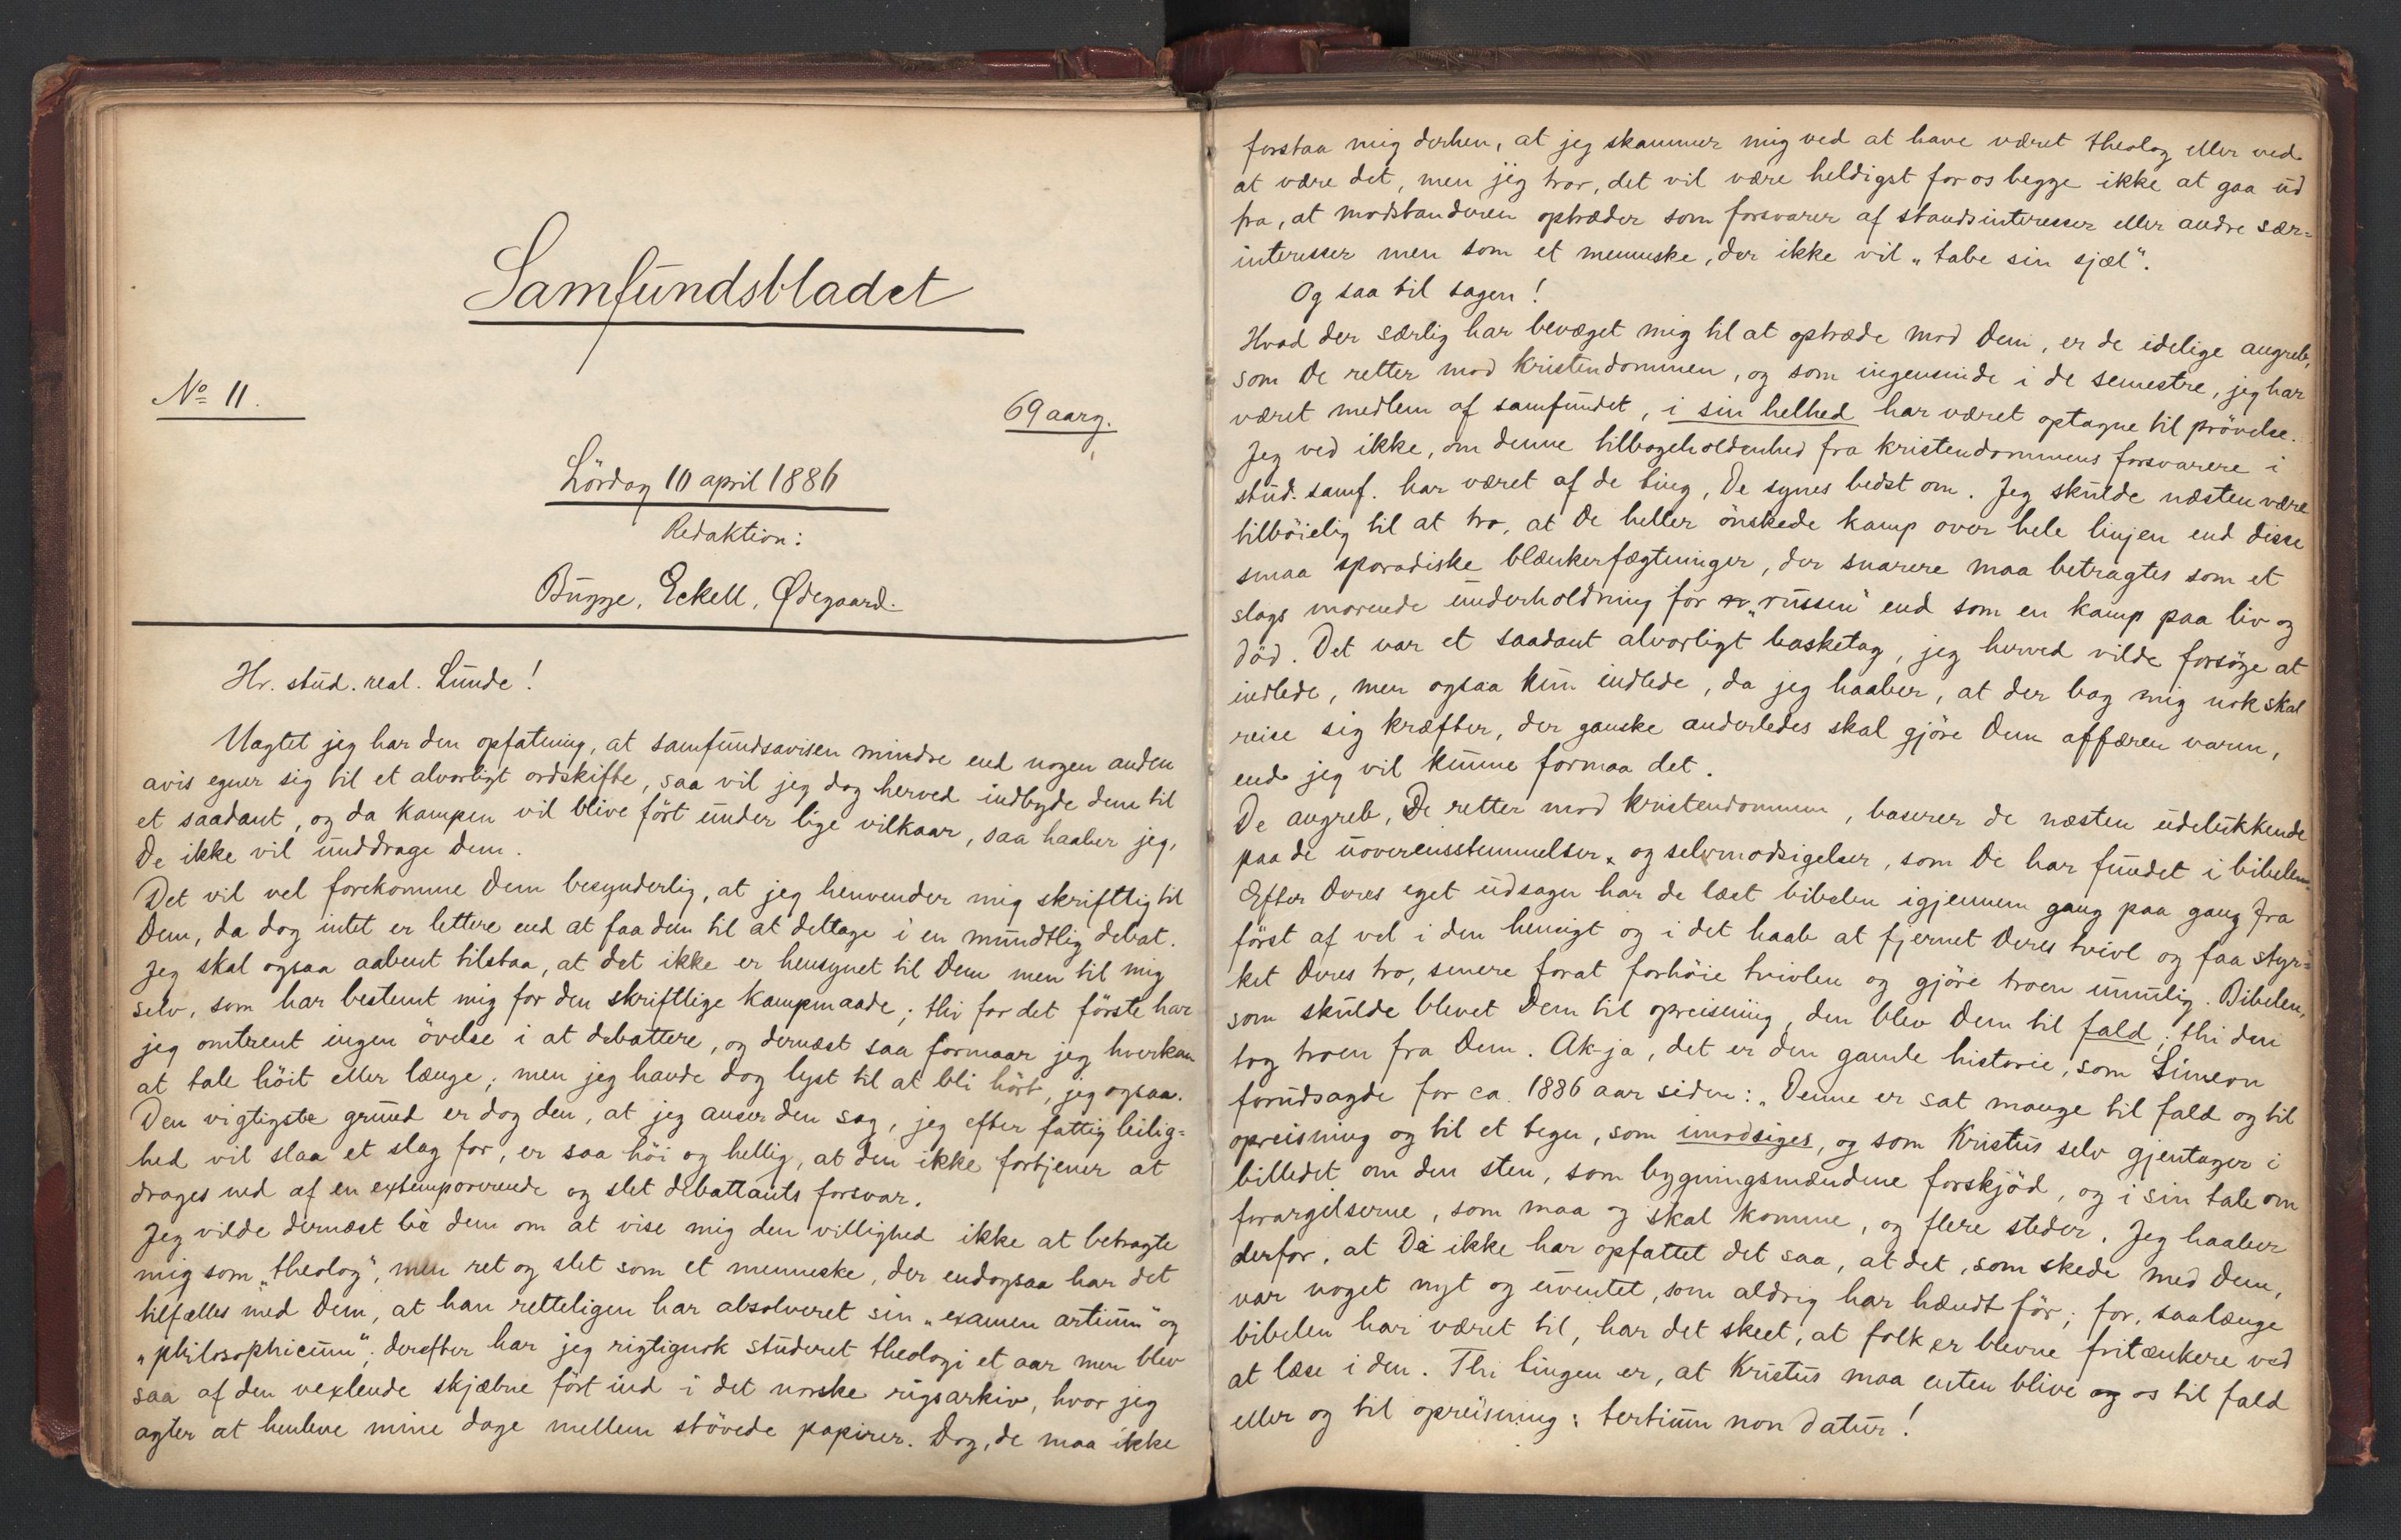 Samfundsbladet
No 11.
69 aarg.
Lördag 10 april 1886
Redaktion:
Bugge, Eckell, Ødegaard.
Hr. stud. real. Lunde!
Uagtet jeg har den opfatning, at samfundsavisen mindre end nogen anden
avis egner sig til et alvorligt ordskifte, saa vil jeg dog herved indbyde dem til
et saadant, og da kampen vil blive fört under lige vilkaar, saa haaber jeg,
De ikke vil unddrage Dem.
Det vil vel forekomme Dem besynderlig, at jeg henvender mig skriftlig til
Dem, da dog intet er lettere end at faa dem til at deltage i en mundtlig debat.
Jeg skal ogsaa aabent tilstaa, at det ikke er hensynet til Dem men til mig
selv, som har bestemt mig for den skriftlige kampmaade; thi for det förste har
jeg omtrent ingen övelse i at debattere, og dernæst saa formaar jeg hverken
at tale höit eller længe; men jeg havde dog lyst til at bli hört, jeg ogsaa.
Den vigtigste grund er dog den, at jeg anser den sag, jeg efter fattig leilig=
hed vil slaa et slag for, er saa höi og hellig, at den ikke fortjener at
drages ned af en extemporerende og slet debattants forsvar.
Jeg vilde dernæst be dem om at vise mig den villighed ikke at betragte
mig som „theolog", men ret og slet som et menneske, der endogsaa har det
tilfælles med Dem, at han retteligen har absolveret sin „examen artium" og
„philosophicum"; derefter har jeg rigtignok studeret theologi et aar men blev
saa af den vexlende skjæbne fört ind i det norske rigsarkiv, hvor jeg
agter at henleve mine dage mellem stövede papirer. Dog, de maa ikke
forstaa mig derhen, at jeg skammer mig ved at have været theolog eller ved
at være det, men jeg tror, det vil være heldigst for os begge ikke at gaa ud
fra, at modstanderen optræder som forsvarer af standsinteresser eller andre sær=
interesser men som et menneske, der ikke vil „tabe sin sjæl".
Og saa til sagen!
Hvad der særlig har bevæget mig til at optræde mod Dem, er de idelige angreb,
som De retter mod kristendommen, og som ingensinde i de semestre, jeg har
været medlem af samfundet, i sin helhed har været optagne til prövelse.
Jeg ved ikke, om denne tilbageholdenhed fra kristendommens forsvarere i
stud. samf. har været af de ting, De synes bedst om. Jeg skulde næsten være
tilböielig til at tro, at De heller önskede kamp over hele linjen end disse
smaa sporadiske blænkerfægtninger, der snarere maa betragtes som et
slags morende underholdning for „russen" end som en kamp paa liv og
död. Det var et saadant alvorligt basketag, jeg herved vilde forsöge at
indlede, men ogsaa kun indlede, da jeg haaber, at der bag mig nok skal
reise sig kræfter, der ganske anderledes skal gjöre Dem affæren varm,
end jeg vil kunne formaa det.
De angreb, De retter mod kristendommen, baserer de næsten udelukkende
paa de uoverensstemmelser og selvmodsigelser, som De har fundet i bibelen.
Efter Deres eget udsagn har de læst bibelen igjennem gang paa gang fra
först af vel i den hensigt og i det haab at fjernet Deres tvivl og faa styr=
ket Deres tro, senere forat forhöie tvivlen og gjöre troen umulig. Bibelen,
som skulde blevet Dem til opreisning, den blev Dem til fald; thi den
tog troen fra Dem. Ak ja, det er den gamle historie, som Simeon
forudsagde for ca. 1886 aar siden: „Denne er sat mange til fald og til
opreisning og til et tegn, som imodsiges, og som Kristus selv gjentager i
billedet om den sten, som bygningsmændene forskjöd, og i sin tale om
forargelserne, som maa og skal komme, og flere steder. Jeg haaber
derfor, at De ikke har opfattet det saa, at det, som skede med Dem,
var noget nyt og uventet, som aldrig har hændt för; for, saalænge
bibelen har været til, har det skeet, at folk er blevne fritænkere ved
at læse i den. Thi tingen er, at Kristus maa enten blive og os til fald
eller og til opreisning: tertium non datur!